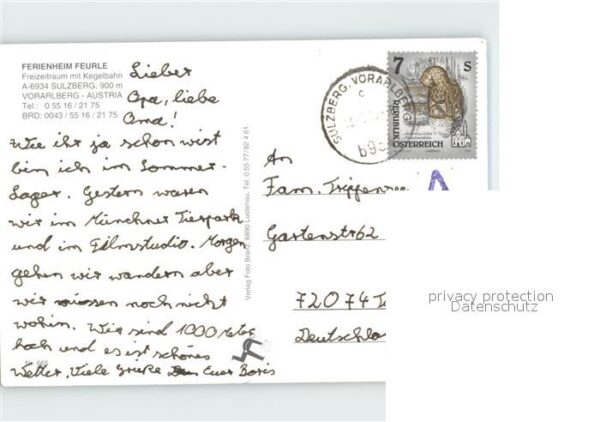 FERIENHEIM FEURLE
Freizeitraum mit Kegelbahn
A-6934 SULZBERG, 900 m
VORARLBERG - AUSTRIA
Tel.: 0 55 16 / 21 75
BRD: 0043 / 55 16 / 21 75
Lieber
Opa, liebe
Oma!
Wie ihr ja schon wist
bin ich im Sommer-
Lager. Gestern waren
wir im Münchner Tierpark
und im Filmstudio. Morgen
gehen wir wandern aber
wir wissen noch nicht
wohin. Wir sind 1000 Meter
hoch und es ist schönes
Wetter. Viele Grüße Euer Boris
Verlag Foto Branz, 6890 Lustenau, Tel. 0 55 77 / 82 4 61
SULZBERG, VORARLBERG
c
693
7 S
REPUBLIK
ÖSTERREICH
An
Fam.
Gartenstr 62
72074
Deutschl
privacy protection
Datenschutz